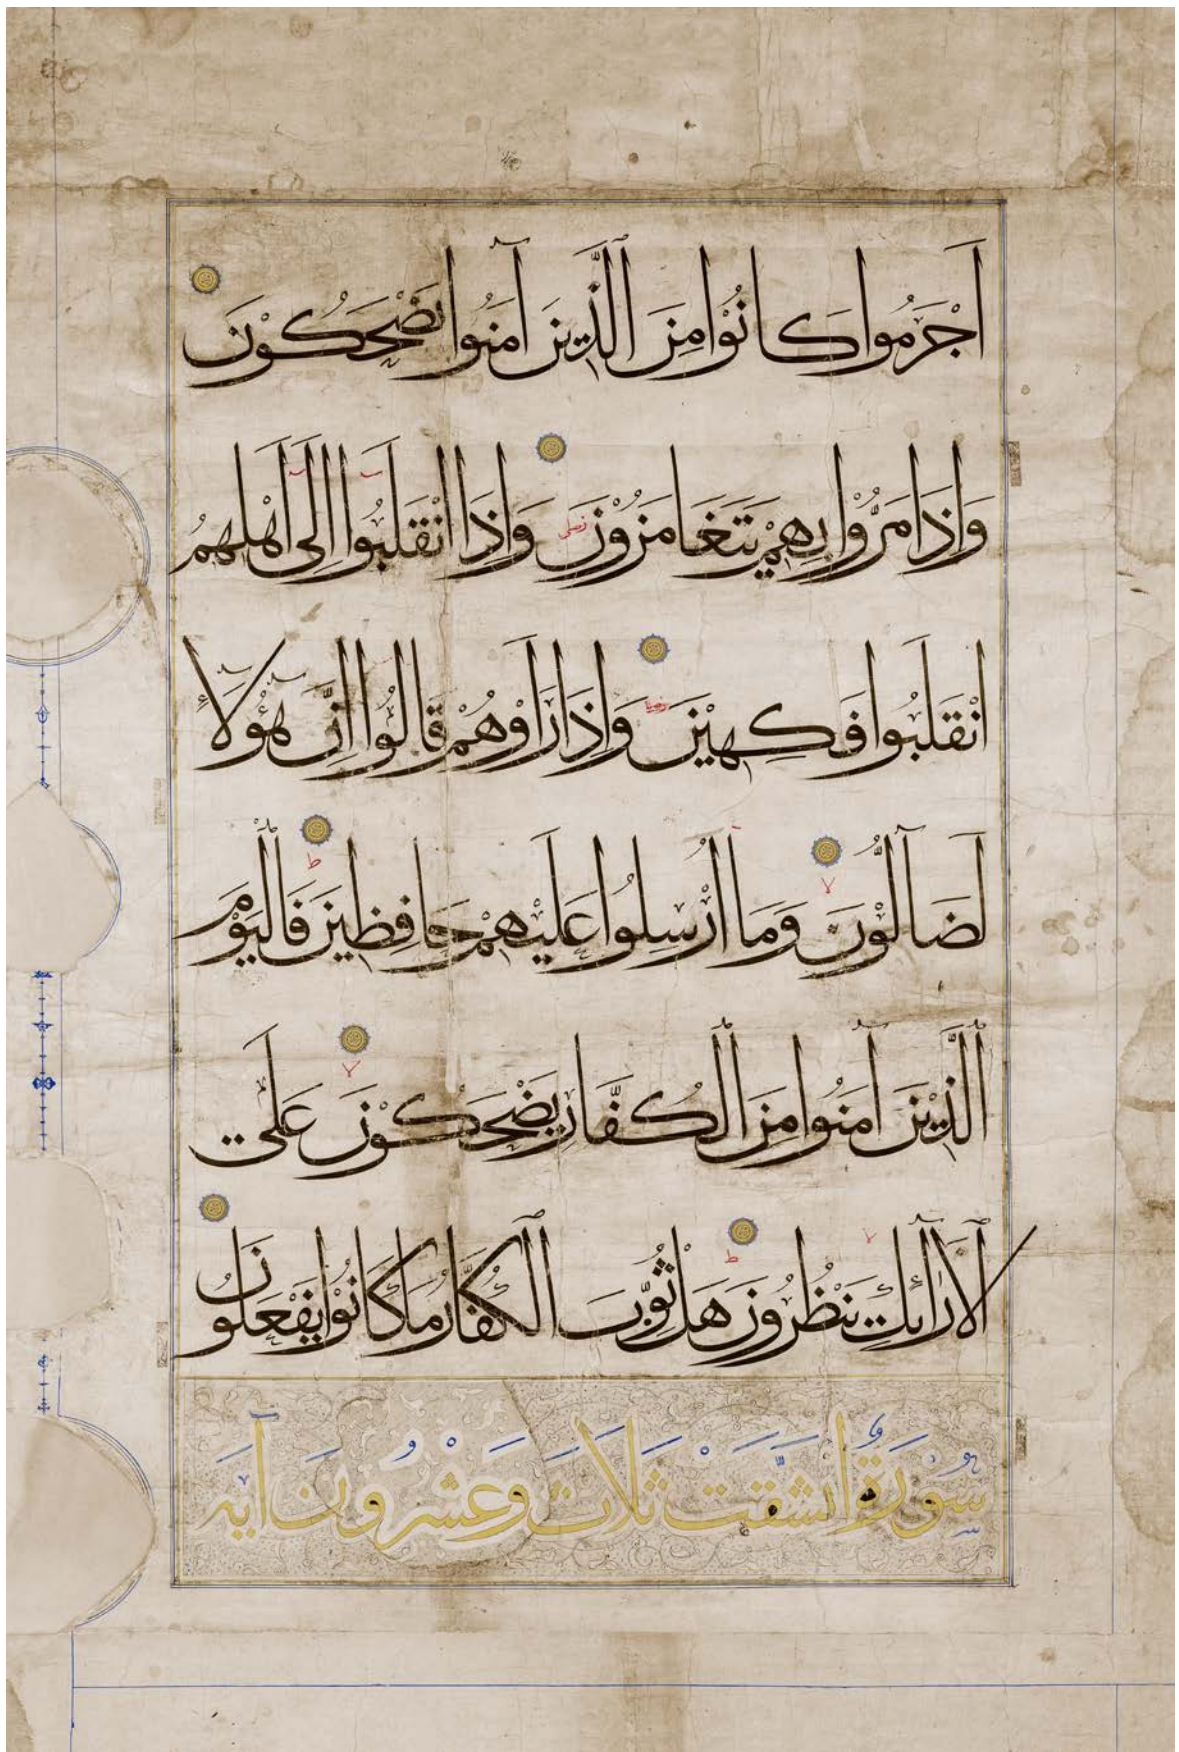 اَجْرَمُوا كَانُوا مِنَ الَّذِينَ آمَنُوا يَضْحَكُوْنَ
وَاِذَا مَرُّوْا بِهِمْ يَتَغَامَزُوْنَ وَاِذَا انْقَلَبُوا اِلَى اَهْلِهِمُ
انْقَلَبُوا فَكِهِيْنَ وَاِذَا رَاَوْهُمْ قَالُوا اِنَّ هٰٓؤُلَآءِ
لَضَآلُّوْنَ وَمَا اُرْسِلُوا عَلَيْهِمْ حَافِظِينَ فَالْيَوْمَ
الَّذِيْنَ آمَنُوا مِنَ الْكُفَّارِ يَضْحَكُوْنَ عَلَى
الْاَرَآئِكِ يَنْظُرُوْنَ هَلْ ثُوِّبَ الْكُفَّارُ مَا كَانُوْا يَفْعَلُوْنَ
سُوْرَةُ انْشَقَّتْ ثَلَاثَ وَعَشْرُونَ آيَه